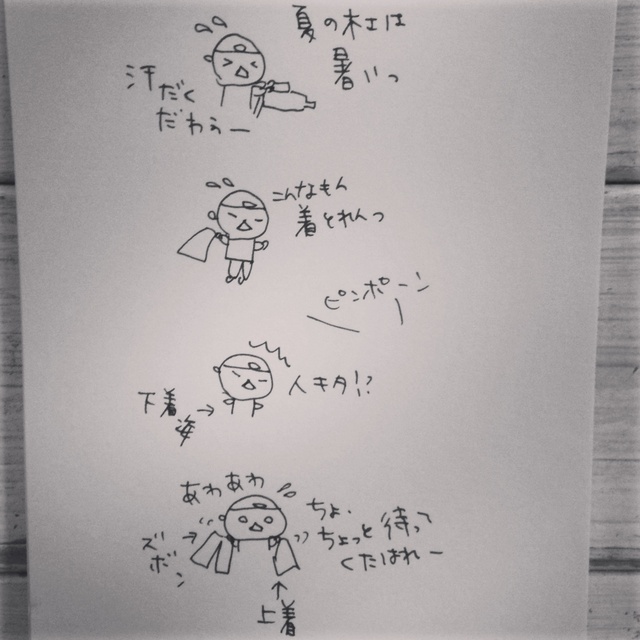 夏の木工は
暑いっ
汗だく
だわぅー
こんなもん
着とれんっ
ピンポーン
人キタ!?
下着
姿
あわあわ
ちょ、
ちょっと待って
くたはれー
ズボン
上着